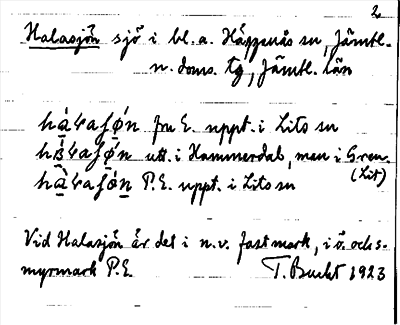 2
Halasjön sjö i bl.a. Häggenås sn, Jämtl.
n. doms. tg, Jämtl. län
fru E. uppt. i Lits sn
utt. i Hammerdal, man i
(Lit)
P.E. uppt. i Lits sn
Vid Halasjön är det i n.v. fastmark, i ö. och s.
myrmark P.E. T. Bucht 1923